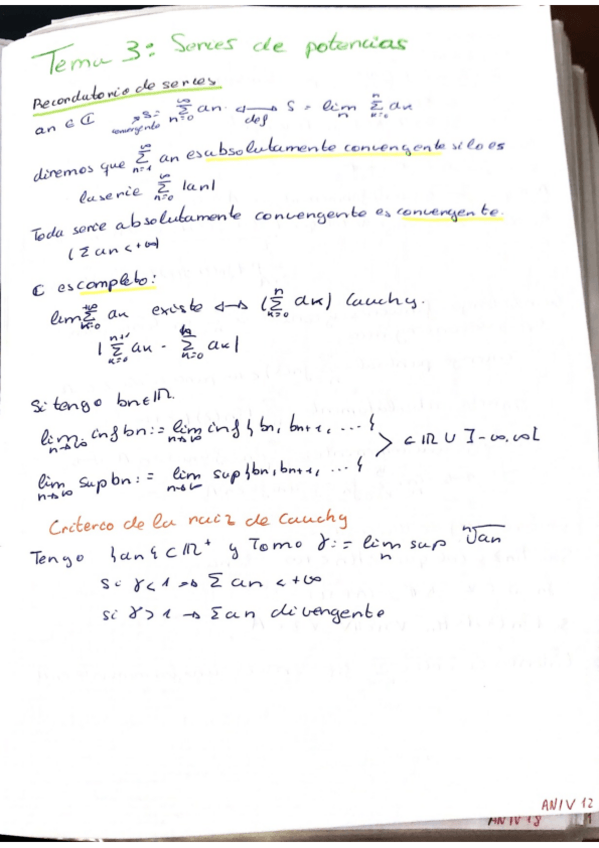 Tema 3: Series de potencias
Recordatorio de series
an ∈ ℂ convergente s = ∞ Σ n=0 an ⟷ def s = lim n n Σ k=0 ak
diremos que ∞ Σ n=1 an es absolutamente convergente si lo es
la serie ∞ Σ n=0 |an|
Toda serie absolutamente convergente es convergente.
(Σ an < +∞)
ℂ es completo:
lim +∞ Σ k=0 an existe ⟷ (n Σ k=0 ak) Cauchy.
| Σ k=0 ak - Σ k=0 ak|
Si tengo bn ∈ ℝ.
lim n→∞ inf bn := lim n→∞ inf { bn, bn+1, ... {
lim n→∞ sup bn := lim sup } bn, bn+1, ... {
> ⊂ ℝ ∪ ]-∞, ∞[
Criterio de la raiz de Cauchy
Tengo }an{ ⊂ ℝ⁺ y Tomo γ := lim sup n ⁿ√an
si γ < 1 ⇒ Σ an < +∞
si γ > 1 → Σ an divergente
AN IV 12
AN IV 18